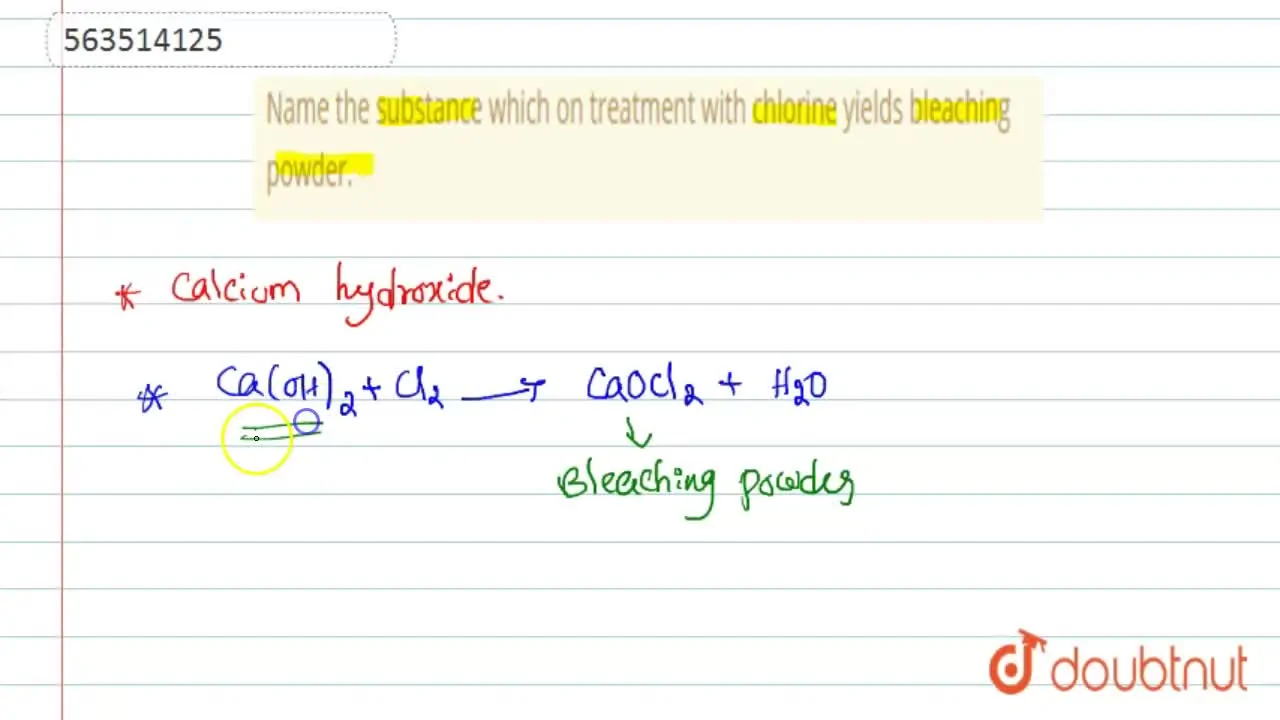 563514125
Name the substance which on treatment with chlorine yields bleaching
powder.
* Calcium hydroxide.
* Ca(OH)2 + Cl2 → CaOCl2 + H2O
↓
Bleaching powder
doubtnut